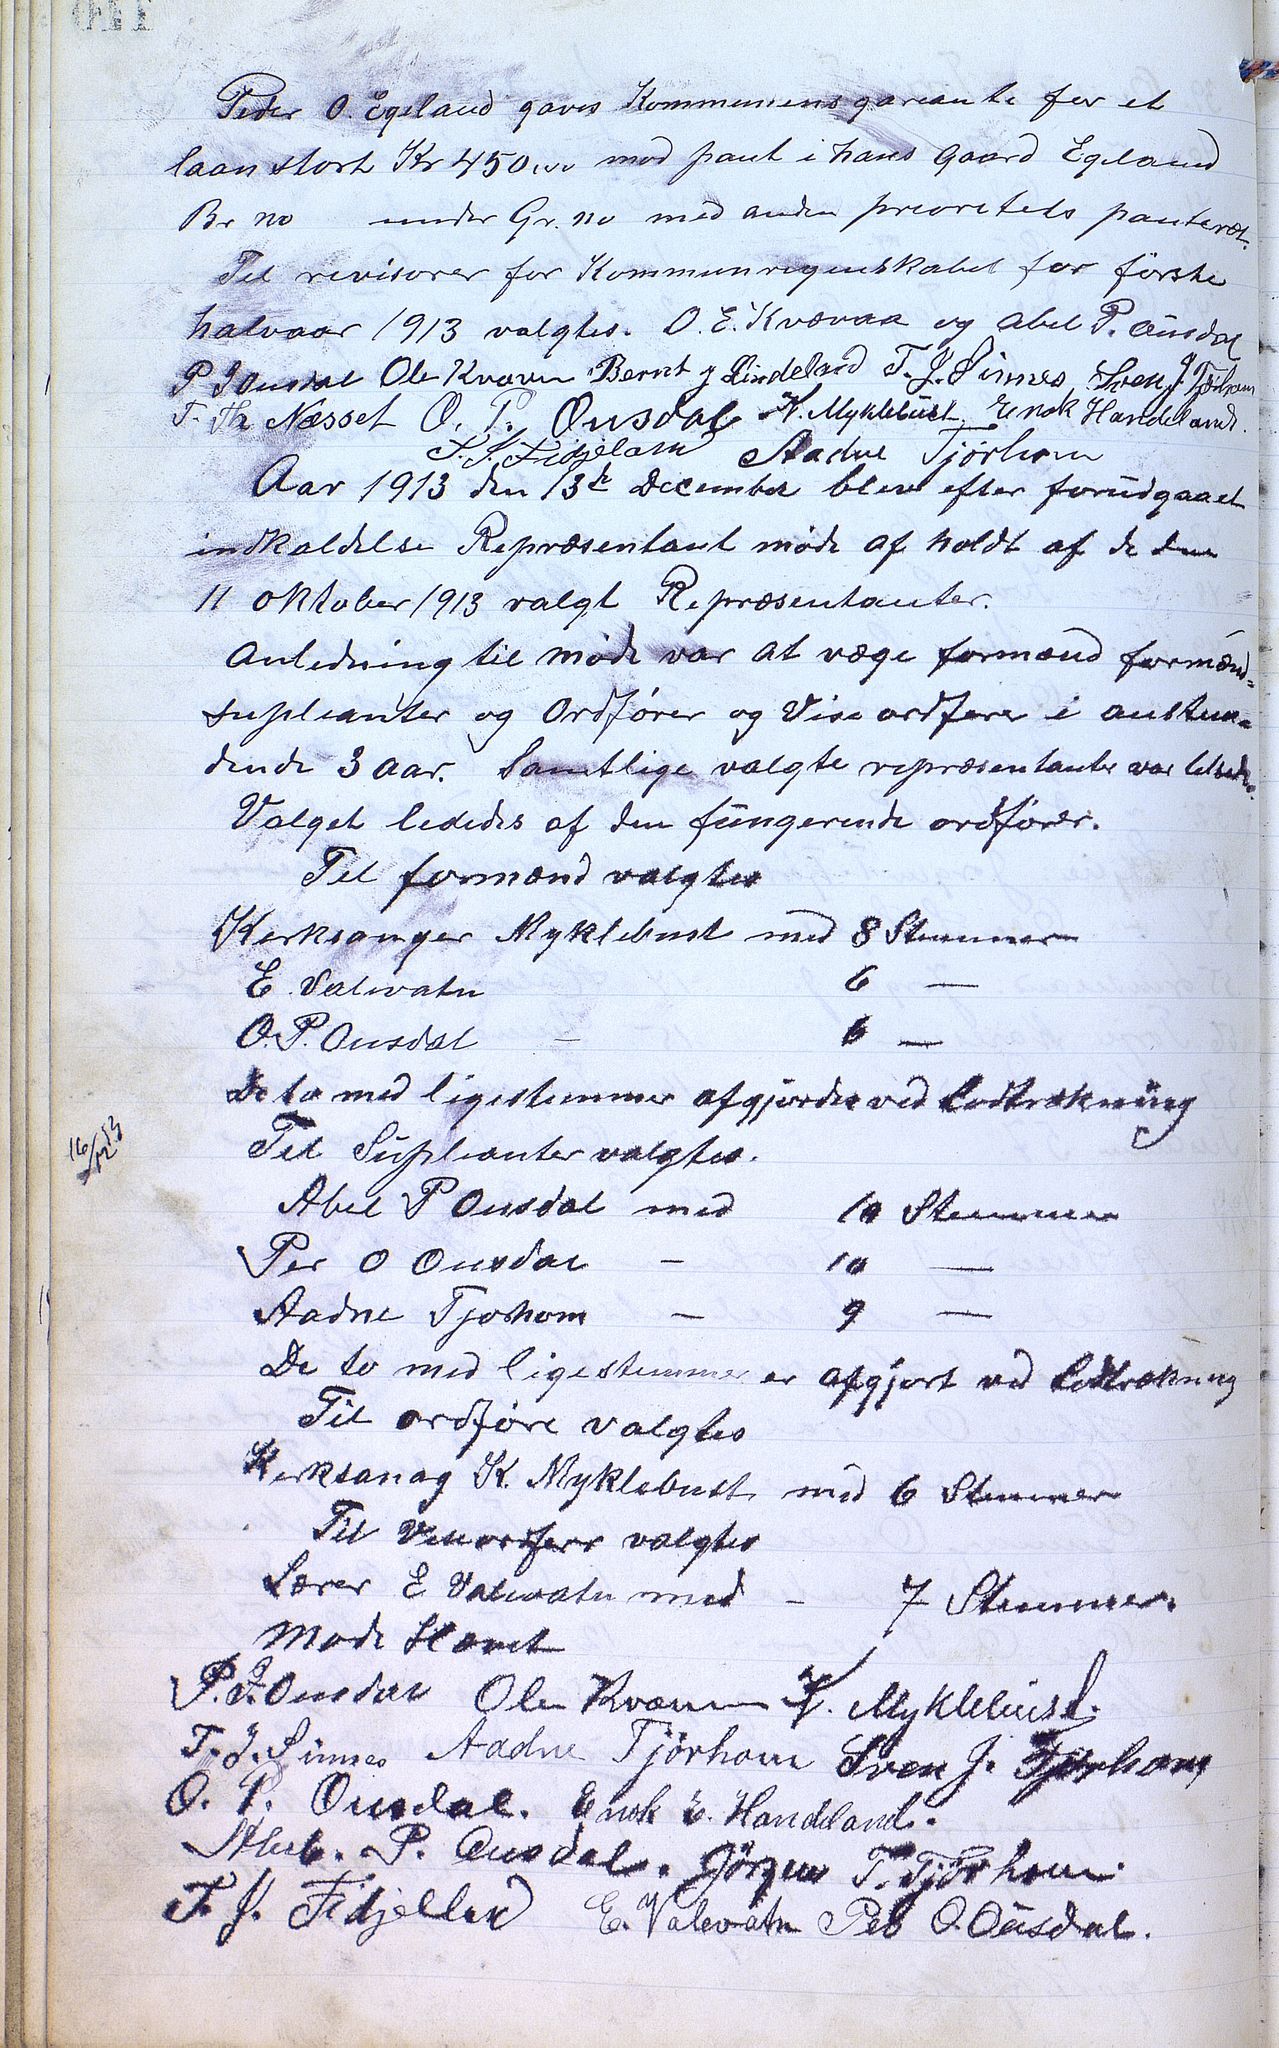 Peder O. Egeland gaves Kommunens garante for et
laan stort Kr 450,00 mod pant i hans Gaard Egeland
Br no under Gr. no med anden prioritets panteret.
Til revisorer for Kommunregenskabet for første
halvaar 1913 valgtes. O. E. Kvævaa og Abel P. Ousdal
P J Ousdal Ole Kvæven Bernt J Lindeland T. J. Sinnes Sven J. Tjørhom
T. Th. Næsset O. P. Ousdal K. Myklebust Enok Handeland.
T. J. Fidjeland Aadne Tjørhom
Aar 1913 den 13de December blev efter forudgaaet
indkaldelse Repræsentant møde af holdt af de den
11 oktober 1913 valgt Repræsentanter.
Anledning til møde var at væge formænd formænd-
supleanter og Ordfører og Vise ordfører i ansten-
dende 3 aar. Samtlige valgte repræsentanter var tilstede.
Valget lededes af den fungerende ordfører.
Til formænd valgtes
Kerksanger Myklebust med 8 Stemmer
E Valevatn 6 —
O. P. Ousdal - 6 —
De to med ligestemmer afgjordes ved lodtrækning
Til Supleanter valgtes.
16/12 13
Abel P Ousdal med 10 Stemmer
Per O Ousdal - 10 —
Aadne Tjorhom - 9 —
De to med ligestemmer er afgjort ved lodtrækning
Til ordføre valgtes
Kerksang K. Myklebust med 6 Stemmer
Til Viseordfører valgtes
Lærer E Valevatn med - 7 Stemmer.
Møde Hævet
P. J. Ousdal Ole Kvæven K. Myklebust.
T. J. Sinnes Aadne Tjørhom Sven J. Tjørhom
O. P. Ousdal. Enok E. Handeland.
Abel. P. Ousdal. Jørgen T. Tjørhom.
T. J. Fidjeland E. Valevatn Per O. Ousdal.